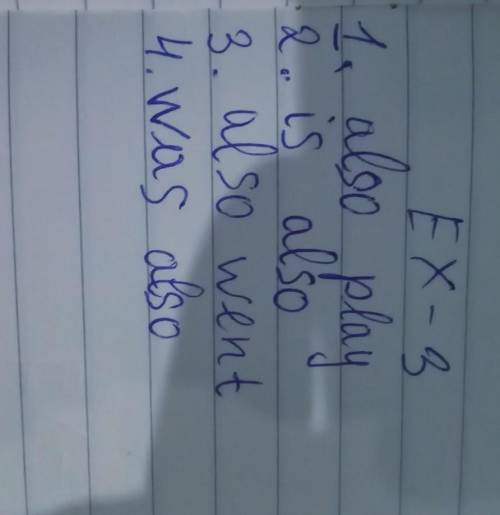 EX-3
1. also play
2. is also
3. also went
4. was also